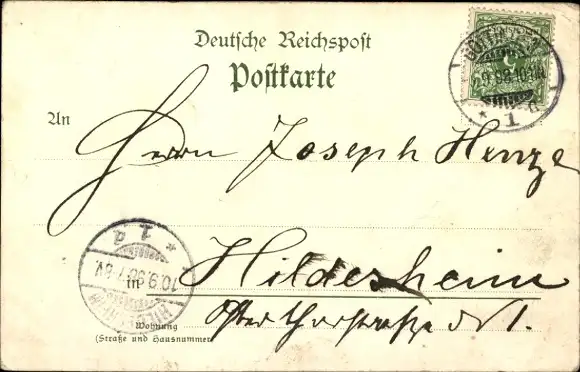 Deutsche Reichspost
Postkarte
An
Herrn Joseph Henze
in Hildesheim
Wohnung
(Straße und Hausnummer)
Osterthorstraße N 1.
1
10.9.98
1